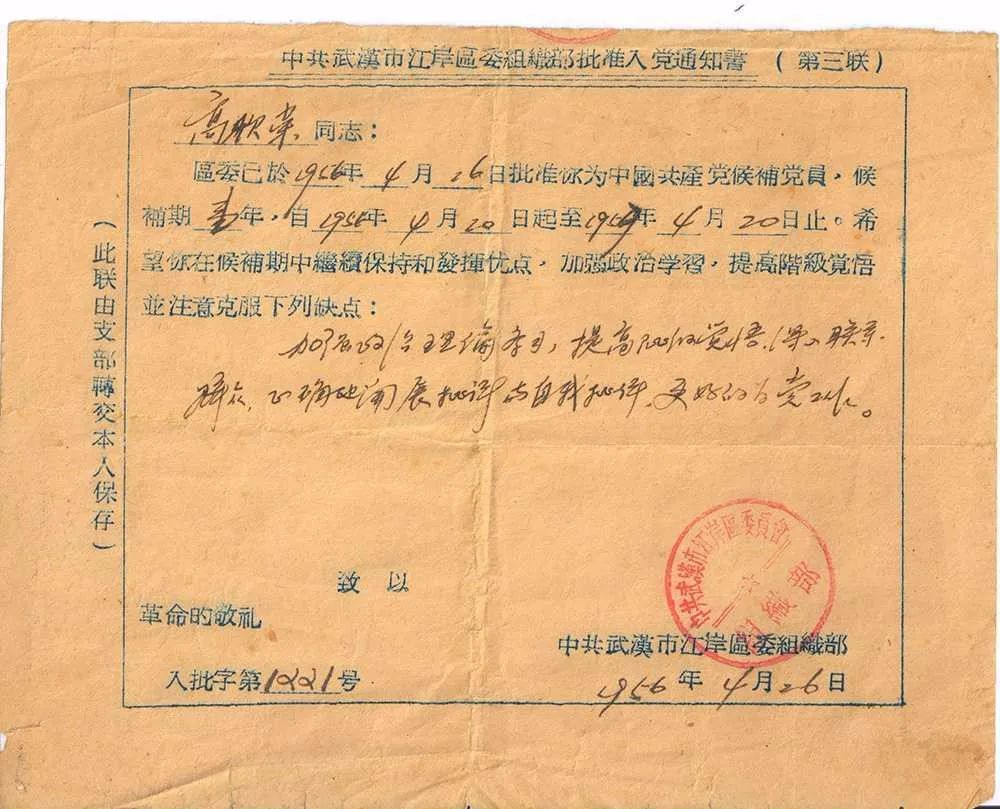 中共武漢市江岸區委組織部批准入党通知書 (第三联)
高欣荣 同志：
區委已於1956年 4 月 26 日批准你为中國共產党候補党員，候
補期 壹 年，自 1956年 4 月 20 日起至1957年 4 月 20 日止。希
望你在候補期中繼續保持和發揮优点，加强政治学習，提高階級覚悟
並注意克服下列缺点：
加强政治理論学习，提高阶级觉悟，深入联系
群众，正确地開展批评与自我批评，更好的为党工作。
致以
革命的敬礼
中共武漢市江岸區委組織部
入批字第1221号
1956 年 4 月 26 日
(此联由支部轉交本人保存)
中共武漢市江岸區委員會
組織部